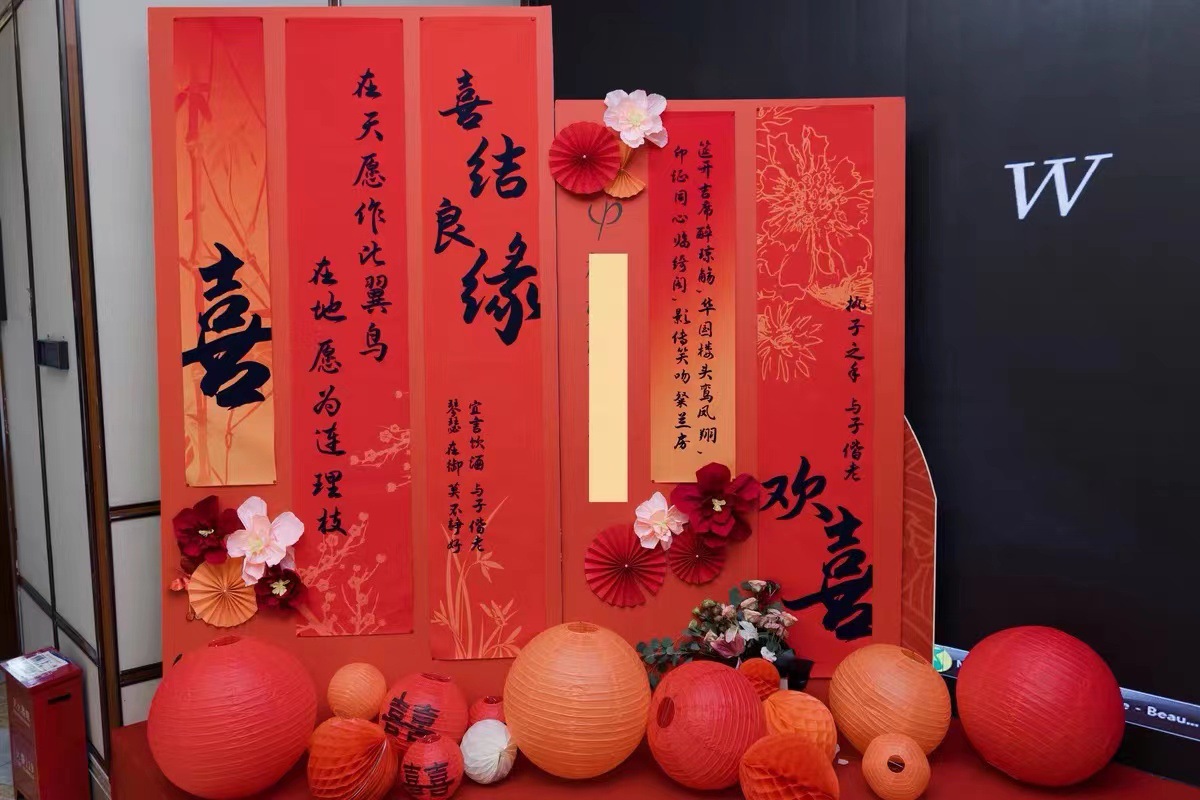 喜
在天愿作比翼鸟
在地愿为连理枝
喜结良缘
宜言饮酒 与子偕老
琴瑟在御 莫不静好
φ
筵开吉席醉琼觞、华国楼头鸾凤翔、
印证同心临绮阁、影传笑吻粲兰房
执子之手 与子偕老
欢喜
W
囍
囍
e - Beau...